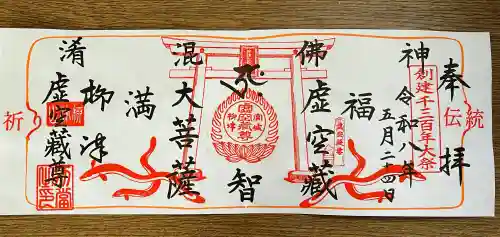 奉拝
伝統
創建千三百年大祭
令和八年
五月二四日
神
福
佛
虚空藏
智
混
大菩薩
満
淆
柳津
虚空藏尊
祈